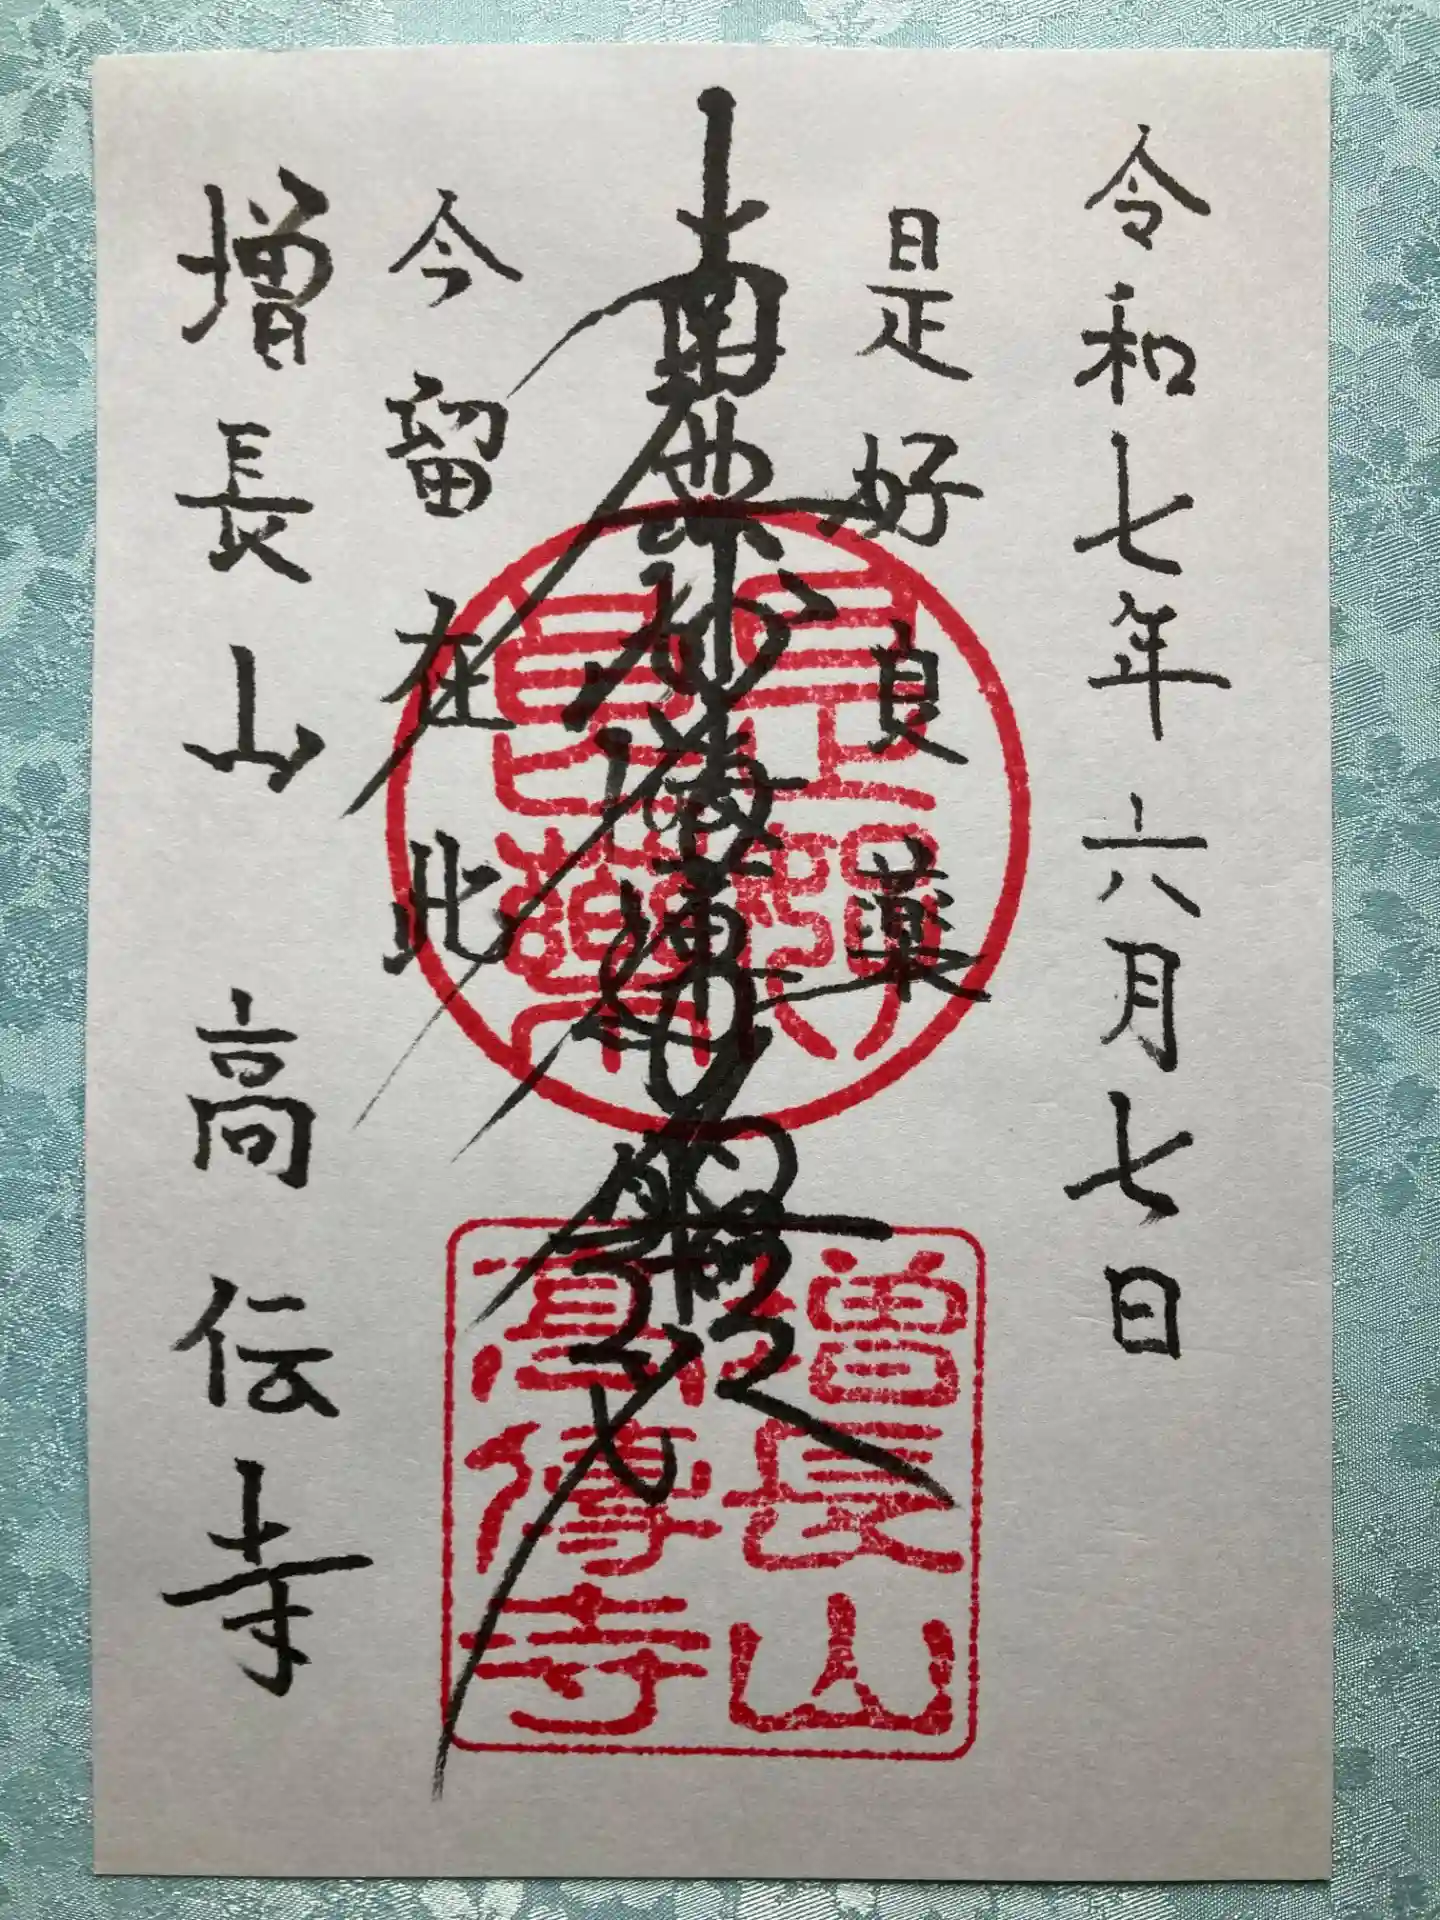 令和七年六月七日
是好良薬
南無妙法蓮華経
今留在此
増長山 高伝寺
是好
良薬
増長山
高傳寺